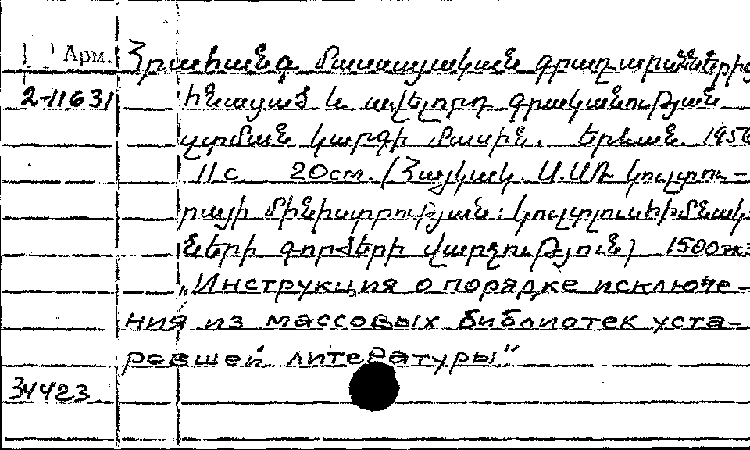 Арм. Հրահանգ մասսայական գրադարաններից
2-11631 հնացած և ավելորդ գրականության
կարգի մասին. Երևան. 1956
11 с 20 cm. (Հայկակ. ՍՍՌ կուլտու-
րայի մինիստրություն: կուլտլուսհիմնարկ-
ների գործերի վարչություն) 1500 экз
„Инструкция о порядке исключе-
ния из массовых библиотек уста-
ревшей литературы"
34423